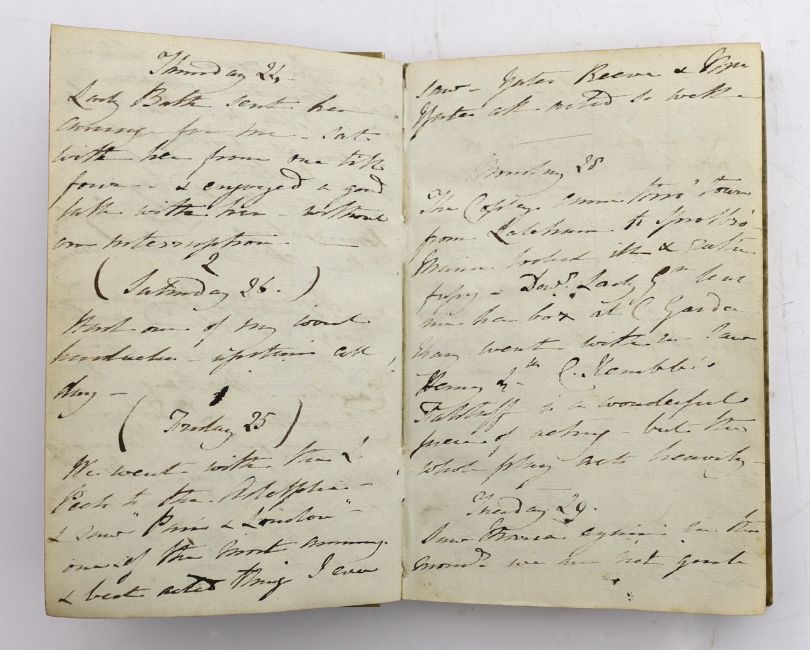 Thursday 24 -
Lady Bath sent her
carriage for me - sat
with her from one till
four - & enjoyed a good
talk with her - without
an interruption -
2
( Saturday 26 - )
Had one of my worst
headaches - upstairs all
day -
1
( Friday 25 )
We went with the
Peels to the Adelphi -
& saw "Paris & London" -
one of the most amusing
& best acted thing I ever
saw - Yates Reeve & Mrs
Yates all acted so well -
Monday 28
The Copleys came to town
from Laleham to Sprotbro'
Maria looked ill &
Dow.r Lady
me her box at C. Garden
went with us - saw
Henry 4th C. Kemble's
Falstaff is a wonderful
piece of acting - but the
whole play acts heavily -
Tuesday 29 -
Saw Maria again in the
we are not